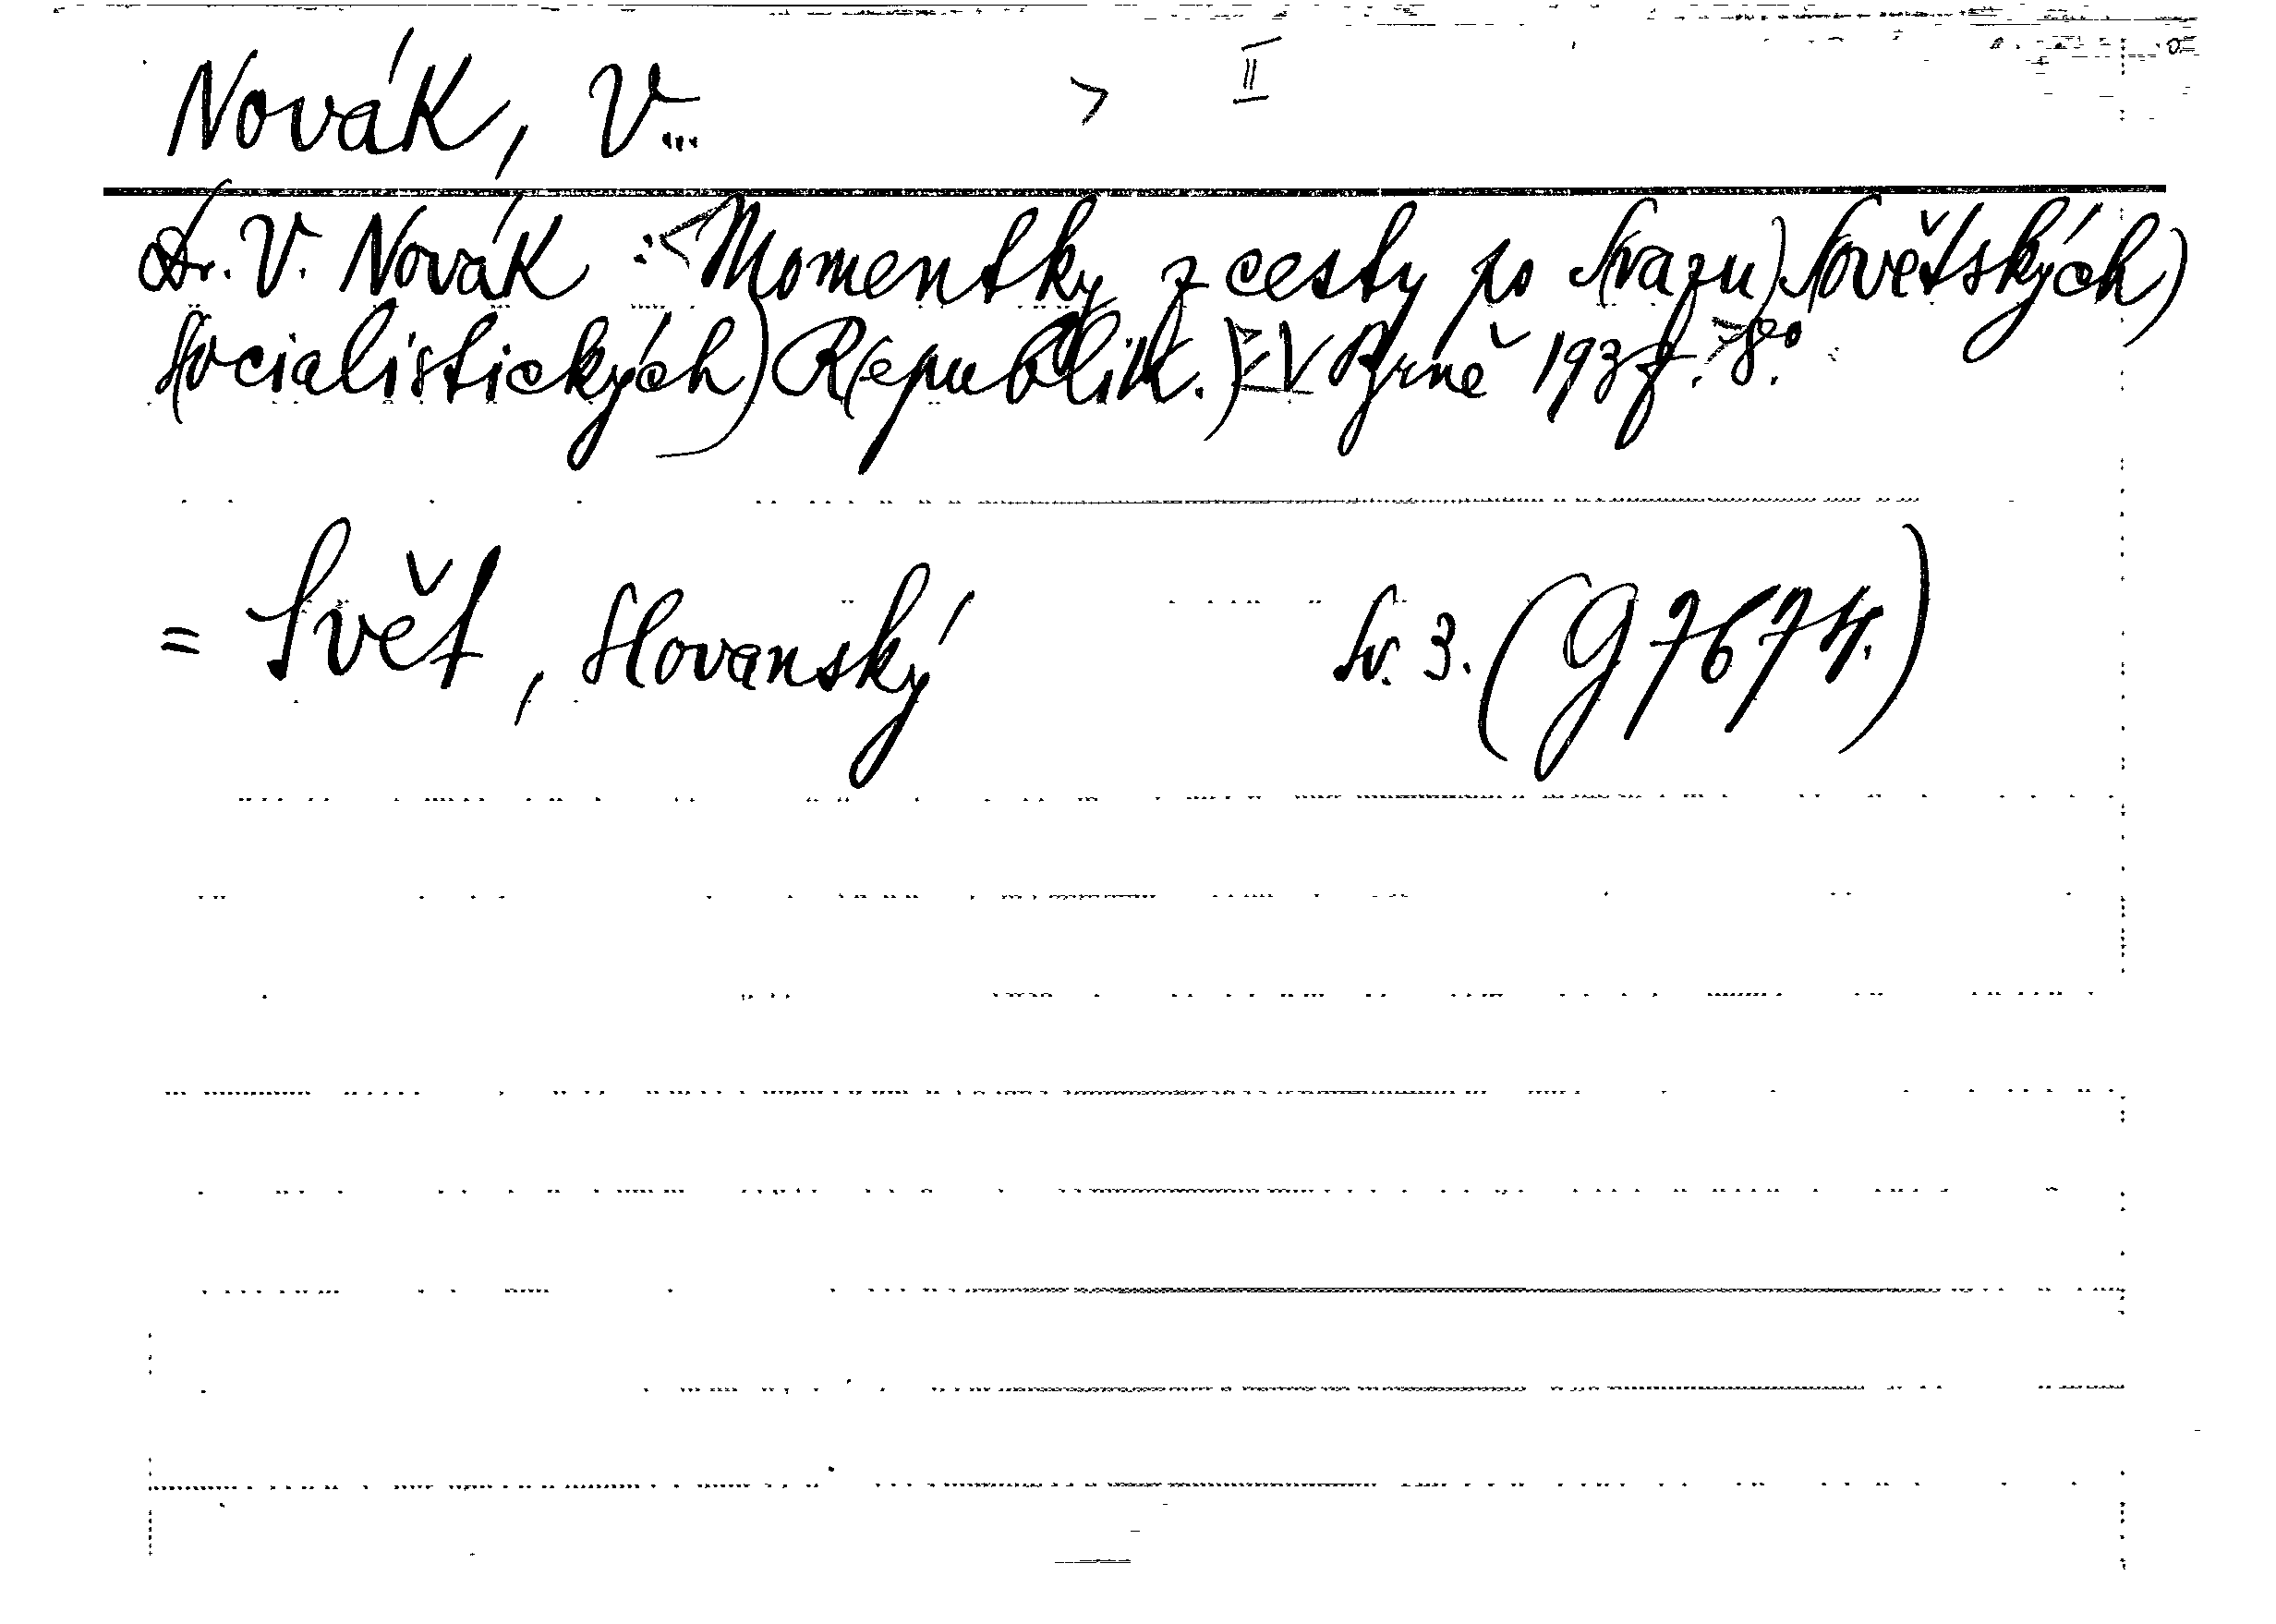 Novák, V... > II
Dr. V. Novák : < Momentky z cesty po S(vazu) S(ovětských)
S(ocialistických) R(epublik.) V Brně 1937. > 8°.
= Svět, Slovanský Sv. 3. (G 7674.)